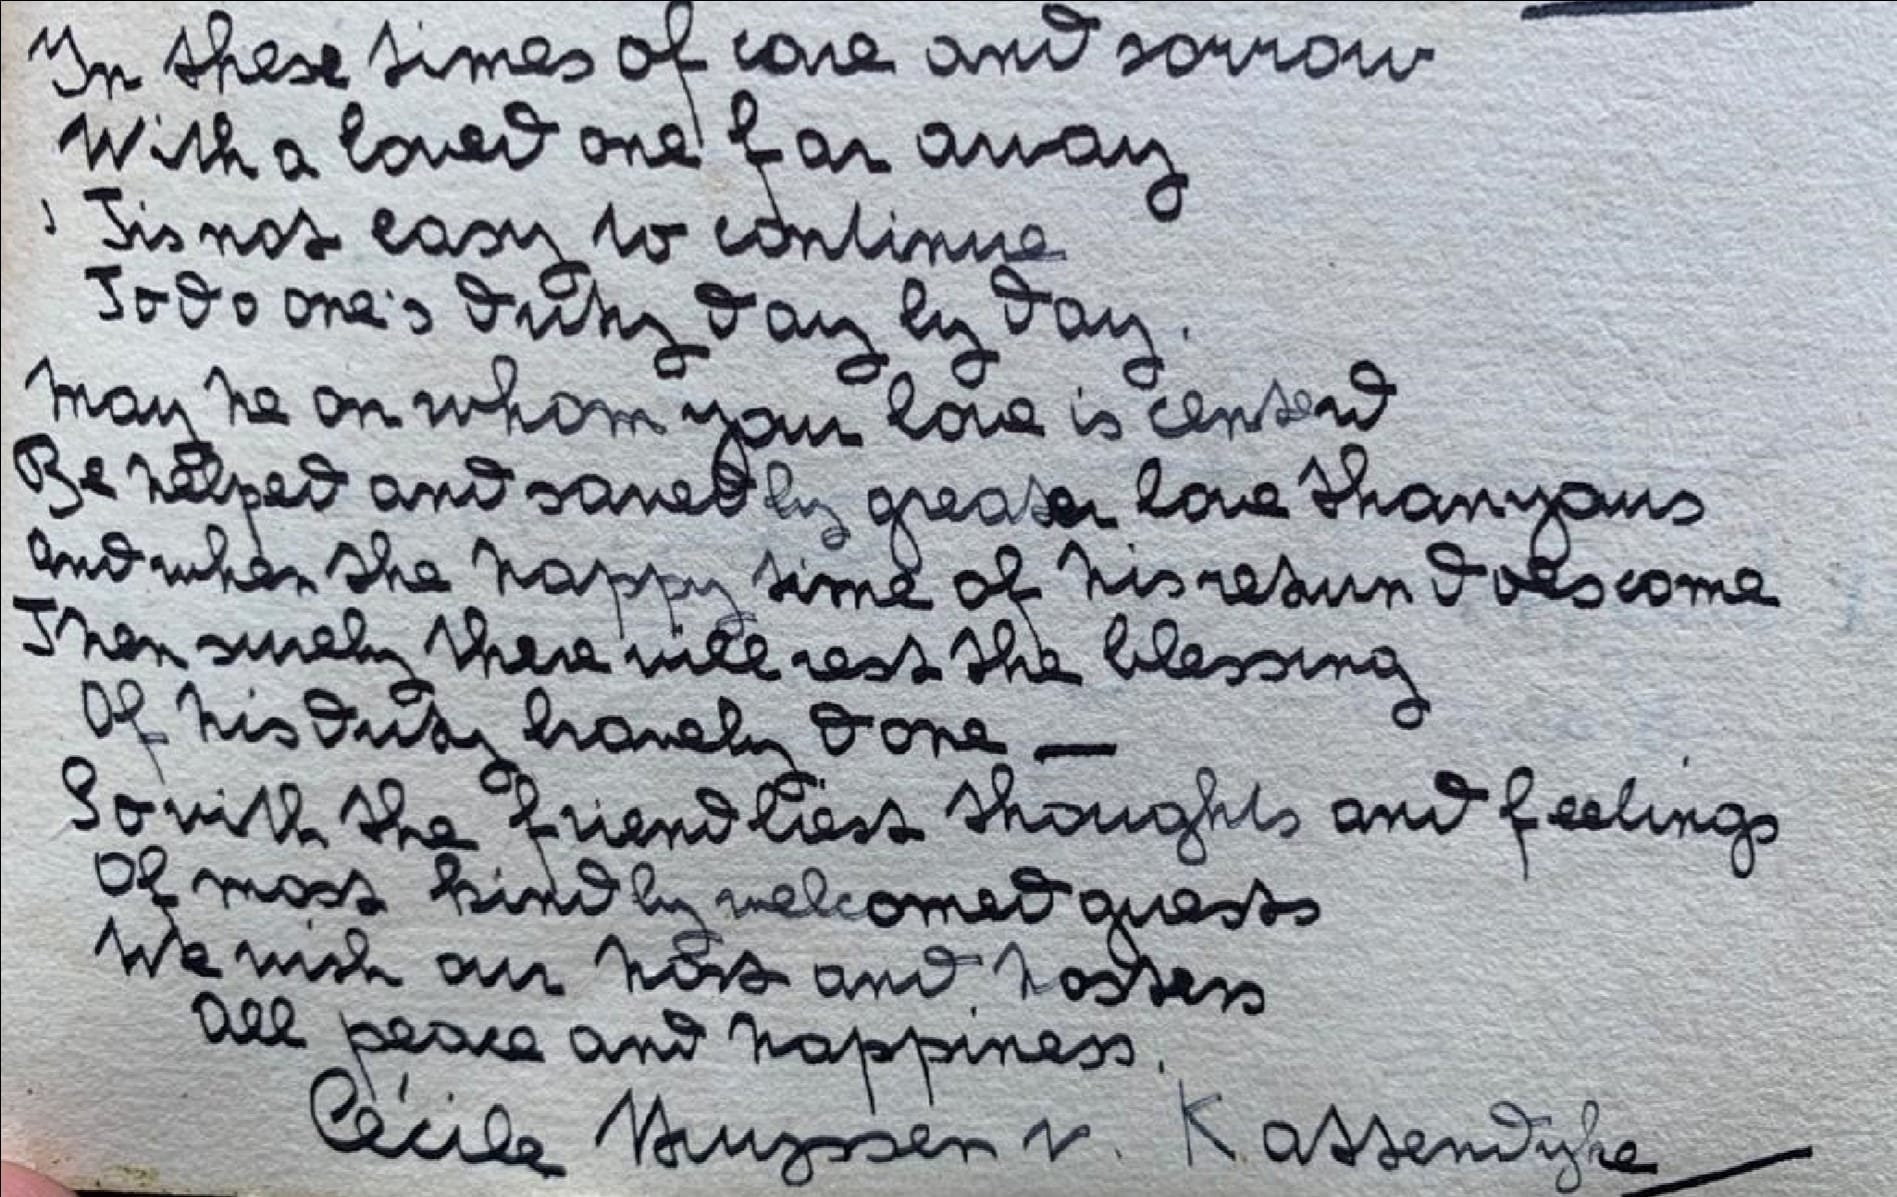 In these times of care and sorrow
With a loved one far away
'Tis not easy to continue
To do one's duty day by day.
May he on whom your love is centerd
Be helped and saved by greater love than yours
And when the happy time of his return does come
Then surely there will rest the blessing
Of his duty bravely done —
So with the friendliest thoughts and feelings
Of most kindly welcomed guests
We wish our host and hostess
All peace and happiness.
Cécile Huyssen v. Kattendyke